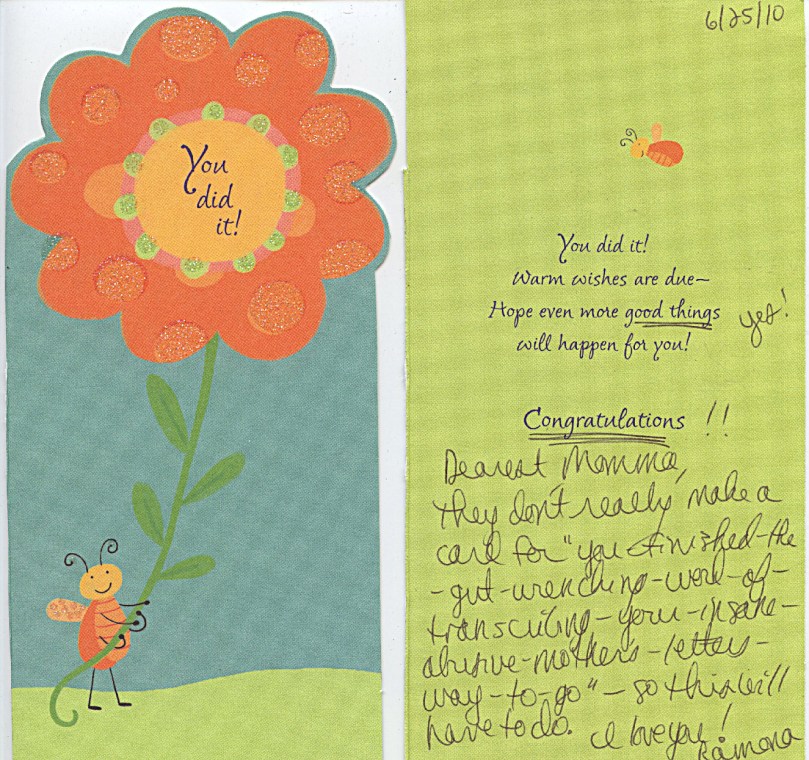 You
did
it!
6/25/10
You did it!
Warm wishes are due—
Hope even more good things
yes!
will happen for you!
Congratulations !!
Dearest Momma,
they don't really make a
card for "you-finished-the
-gut-wrenching-work-of-
transcribing-your-insane-
abusive-mother's-letters-
way-to-go" – so this will
have to do. I love you!
Ramona